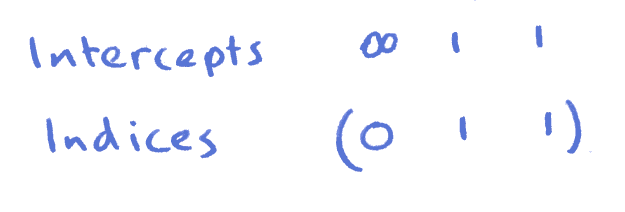 Intercepts ∞ 1 1
Indices (0 1 1)